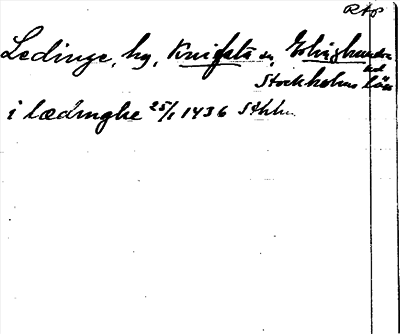 RAP
Ledinge, by, Knifsta sn, Erlinghundra hd
Stockholms län
i lædinghe 25/1 1436 Sthlm